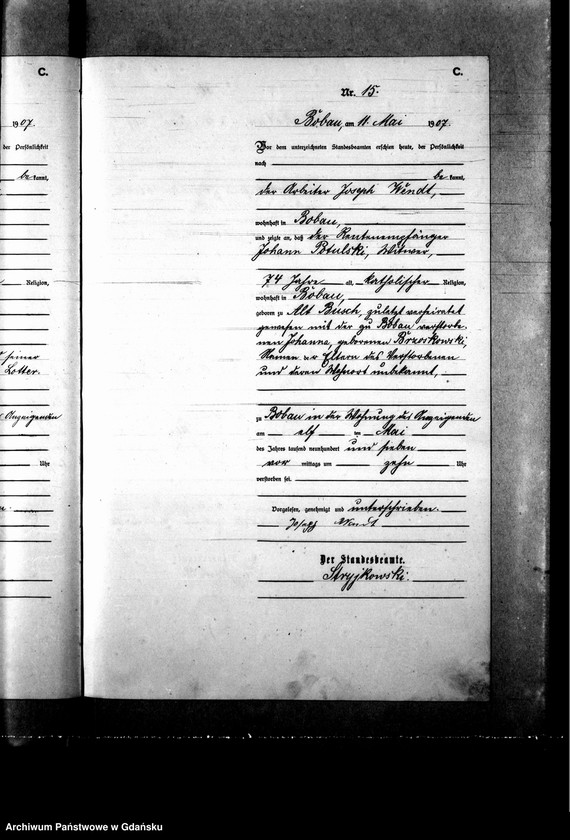 C.
1907.
der Persönlichkeit
be kannt,
Religion,
seiner
Lotter.
Anzeigenden
Uhr
C.
Nr. 15.
Bobau, am 11. Mai 1907.
Vor dem unterzeichneten Standesbeamten erschien heute, der Persönlichkeit
nach
be kannt,
der Arbeiter Joseph Wendt,
wohnhaft in Bobau,
und zeigte an, daß der Rentenempfänger
Johann Potulski, Witwer,
74 Jahre alt, katholischer Religion,
wohnhaft in Bobau,
geboren zu Alt Busch, zuletzt verheiratet
gewesen mit der zu Bobau verstorbe-
nen Johanna, geborenen Brzoskowski,
Namen der Eltern des Verstorbenen
und deren Wohnort unbekannt,
zu Bobau in der Wohnung des Anzeigenden
am elf ten Mai
des Jahres tausend neunhundert und sieben
vor mittags um zehn Uhr
verstorben sei.
Vorgelesen, genehmigt und unterschrieben.
Joseph Wendt
Der Standesbeamte.
Stryjkowski.
Archiwum Państwowe w Gdańsku